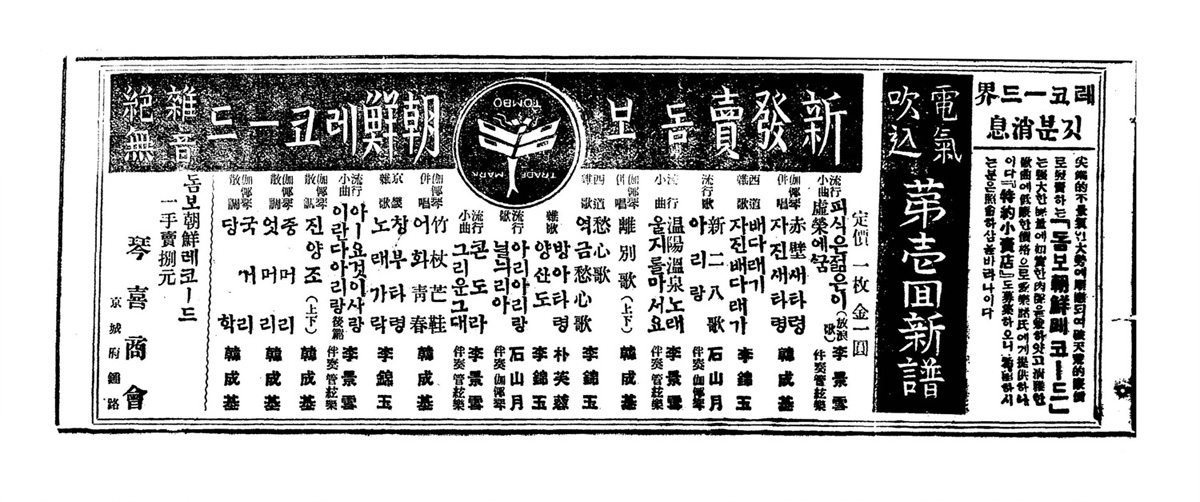 레코ー드界
깃분消息
尖端的不景氣인大勢에順應되여破天荒的廉價
로發賣하는「돔보朝鮮레코ー드」
는强大한音量에 한肉聲을兼하얏고淸雅한
歌曲에低廉한價格으로 諸氏에게提供하나
이다『特約小賣店』도募集하오니希望하시
는분은照會하심을바라나이다
電氣
吹込
第壹回新譜
新發賣돔보
TOMBO
TRADE MARK
朝鮮레코ー드
雜音
絶無
定價 一枚 金一圓
流行小曲 피식은젊은이(放浪歌) 李景雲
虛榮에꿈 伴奏管絃樂
伽倻琴併唱 赤壁새타령 韓成基
자진새타령
西道雜歌 배다래기 李錦玉
자진배다래가
流行歌 新二八歌 石山月
아리랑 伴奏伽倻琴
流行小曲 溫陽溫泉노래 李景雲
울지를마서요 伴奏管絃樂
伽倻琴併唱 離別歌(上下) 韓成基
西道雜歌 愁心歌 李錦玉
역금愁心歌
雜歌 방아타령 朴英蓉
양산도 李錦玉
流行歌 아리아리랑 石山月
늴늬리아 伴奏伽倻琴
流行小曲 콘도라 李景雲
그리운그대 伴奏管絃樂
伽倻琴併唱 竹杖芒鞋 韓成基
어화靑春
京畿雜歌 창부타령 李錦玉
노래가락
流行小曲 아ー요것이사랑 李景雲
이란다아리랑後篇 伴奏管絃樂
伽倻琴散調 진양조(上下) 韓成基
伽倻琴散調 중머리 韓成基
엇머리
伽倻琴散調 국거리 韓成基
당학
돔보朝鮮레코ー드
一手賣捌元
琴喜商會
京城府鍾路